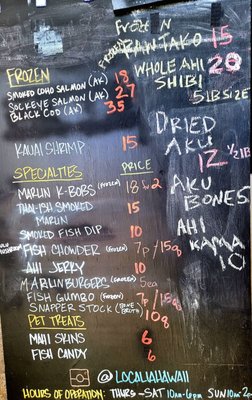 FROZEN
SMOKED COHO SALMON (AK) 18
SOCKEYE SALMON (AK) 27
BLACK COD (AK) 35
KAUAI SHRIMP 15
SPECIALTIES PRICE
MARLIN K-BOBS (FROZEN) 18
THAI-ISH SMOKED MARLIN 15
SMOKED FISH DIP 10
FISH CHOWDER (FROZEN) 7p/15q
AHI JERKY 10
MARLIN BURGERS (FROZEN) 5ea
FISH GUMBO (FROZEN) 7p/15q
SNAPPER STOCK 10q
PET TREATS
MAHI SKINS 6
FISH CANDY 6
@LOCALIAHAWAII
HOURS OF OPERATION: THURS-SAT 10AM-6PM SUN 10AM-2
FROZEN
TAKO 15
WHOLE AHI 20
SHIBI
5LB SIZE
DRIED
AKU
12 1/2 LB
AKU
BONES
AHI
KAMA
10